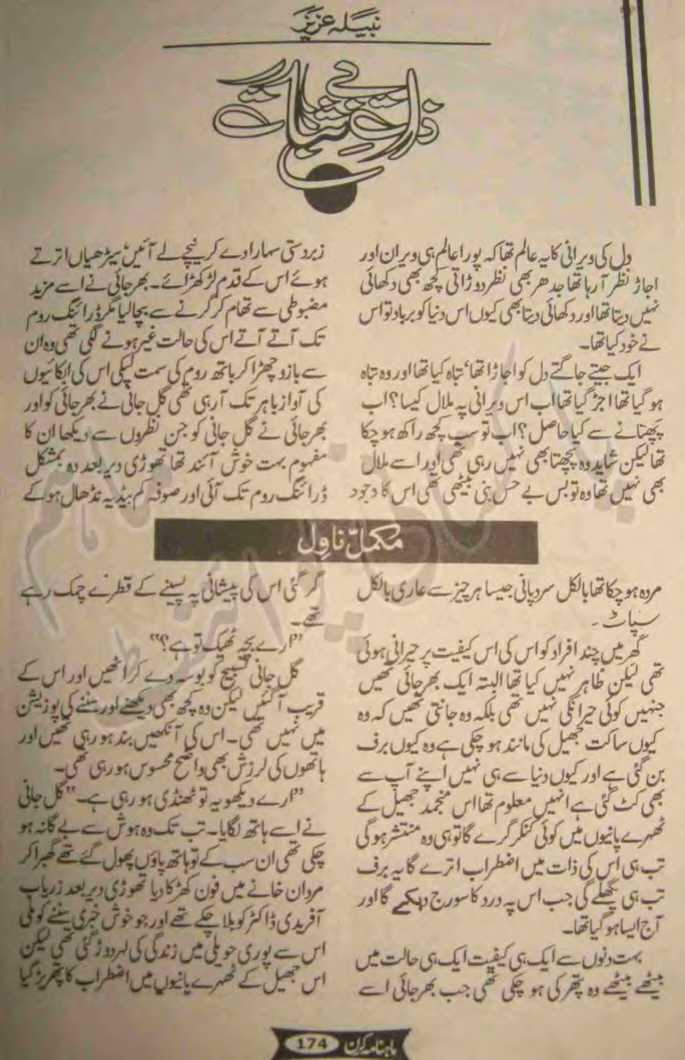 نبیلہ عزیز
دل کی ویرانی کا یہ عالم تھا کہ پورا عالم ہی ویران اور
اجاڑ نظر آ رہا تھا جدھر بھی نظر دوڑاتی کچھ بھی دکھائی
نہیں دیتا تھا اور دکھائی دیتا بھی کیوں اس دنیا کو برباد تو اس
نے خود کیا تھا۔
ایک جیتے جاگتے دل کو اجاڑا تھا، تباہ کیا تھا اور وہ تباہ
ہو گیا تھا اجڑ گیا تھا اب اس ویرانی پہ ملال کیسا؟ اب
پچھتانے سے کیا حاصل؟ اب تو سب کچھ راکھ ہو چکا
تھا لیکن شاید وہ پچھتا بھی نہیں رہی تھی اور اسے ملال
بھی نہیں تھا وہ تو بس بے حس بنی بیٹھی تھی اس کا وجود
مکمل ناول
مردہ ہو چکا تھا بالکل سرد پانی جیسا ہر چیز سے عاری بالکل
سپاٹ۔
گھر میں چند افراد کو اس کی اس کیفیت پر حیرانی ہوئی
تھی لیکن ظاہر نہیں کیا تھا البتہ ایک بھرجائی تھیں
جنہیں کوئی حیرانگی نہیں تھی بلکہ وہ جانتی تھیں کہ وہ
کیوں ساکت جھیل کی مانند ہو چکی ہے وہ کیوں برف
بن گئی ہے اور کیوں دنیا سے ہی نہیں اپنے آپ سے
بھی کٹ گئی ہے انہیں معلوم تھا اس منجمد جھیل کے
ٹھہرے پانیوں میں کوئی کنکر گرے گا تو ہی وہ منتشر ہوگی
تب ہی اس کی ذات میں اضطراب اترے گا یہ برف
تب ہی پگھلے گی جب اس پہ درد کا سورج دہکے گا اور
آج ایسا ہو گیا تھا۔
بہت دنوں سے ایک ہی کیفیت ایک ہی حالت میں
بیٹھے بیٹھے وہ پتھر کی ہو چکی تھی جب بھرجائی اسے
زبردستی سہارا دے کر نیچے لے آئیں سیڑھیاں اترتے
ہوئے اس کے قدم لڑکھڑائے۔ بھرجائی نے اسے مزید
مضبوطی سے تھام کر گرنے سے بچا لیا مگر ڈرائنگ روم
تک آتے آتے اس کی حالت غیر ہونے لگی تھی وہ ان
سے بازو چھڑا کر باتھ روم کی سمت لپکی اس کی ابکائیوں
کی آواز باہر تک آ رہی تھی گل جانی نے بھرجائی کو اور
بھرجائی نے گل جانی کو جن نظروں سے دیکھا ان کا
مفہوم بہت خوش آئند تھا تھوڑی دیر بعد وہ بمشکل
ڈرائنگ روم تک آئی اور صوفہ کم بیڈ پہ نڈھال ہو کے
گر گئی اس کی پیشانی پہ پسینے کے قطرے چمک رہے
تھے۔
"ارے بچہ ٹھیک تو ہے؟"
گل جانی تسبیح کو بوسہ دے کر اٹھیں اور اس کے
قریب آ گئیں لیکن وہ کچھ بھی دیکھنے اور سننے کی پوزیشن
میں نہیں تھی۔ اس کی آنکھیں بند ہو رہی تھیں اور
ہاتھوں کی لرزش بھی واضح محسوس ہو رہی تھی۔
"ارے دیکھو یہ تو ٹھنڈی ہو رہی ہے۔" گل جانی
نے اسے ہاتھ لگایا۔ تب تک وہ ہوش سے بے گانہ ہو
چکی تھی ان سب کے تو ہاتھ پاؤں پھول گئے تھے گھبرا کر
مردان خانے میں فون کھڑکا دیا تھوڑی دیر بعد زریاب
آفریدی ڈاکٹر کو بلا چکے تھے اور جو خوش خبری سننے کو ملی
اس سے پوری حویلی میں زندگی کی لہر دوڑ گئی تھی لیکن
اس جھیل کے ٹھہرے پانیوں میں اضطراب کا پتھر پڑ گیا
ماہنامہ کرن 174